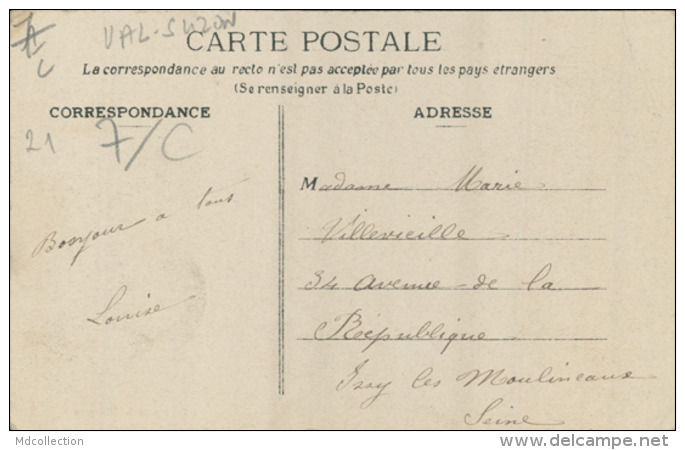 VAL-SUZON
CARTE POSTALE
La correspondance au recto n'est pas acceptée par tous les pays étrangers
(Se renseigner à la Poste)
CORRESPONDANCE
ADRESSE
21
7/C
Bonjour a tous
Louise
Madame Marie
Villevieille
34 avenue de la
République
Issy les Moulineaux
Seine
Mdcollection
www.delcampe.net